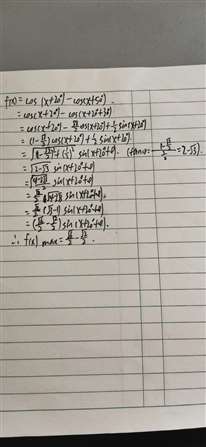 f(x) = cos(x+20°) - cos(x+50°).
= cos(x+20°) - cos(x+20°+30°)
= cos(x+20°) - √3/2 cos(x+20°) + 1/2 sin(x+20°)
= (1-√3/2) cos(x+20°) + 1/2 sin(x+20°)
= √((1-√3/2)²+(1/2)²) sin(x+20°+θ). (tanθ = (1-√3/2)/(1/2) = 2-√3).
= √(2-√3) sin(x+20°+θ)
= √((4-2√3)/2) sin(x+20°+θ)
= √2/2 √(4-2√3) sin(x+20°+θ).
= √2/2 (√3-1) sin(x+20°+θ)
= (√6/2 - √2/2) sin(x+20°+θ).
∴ f(x) max = √6/2 - √2/2.